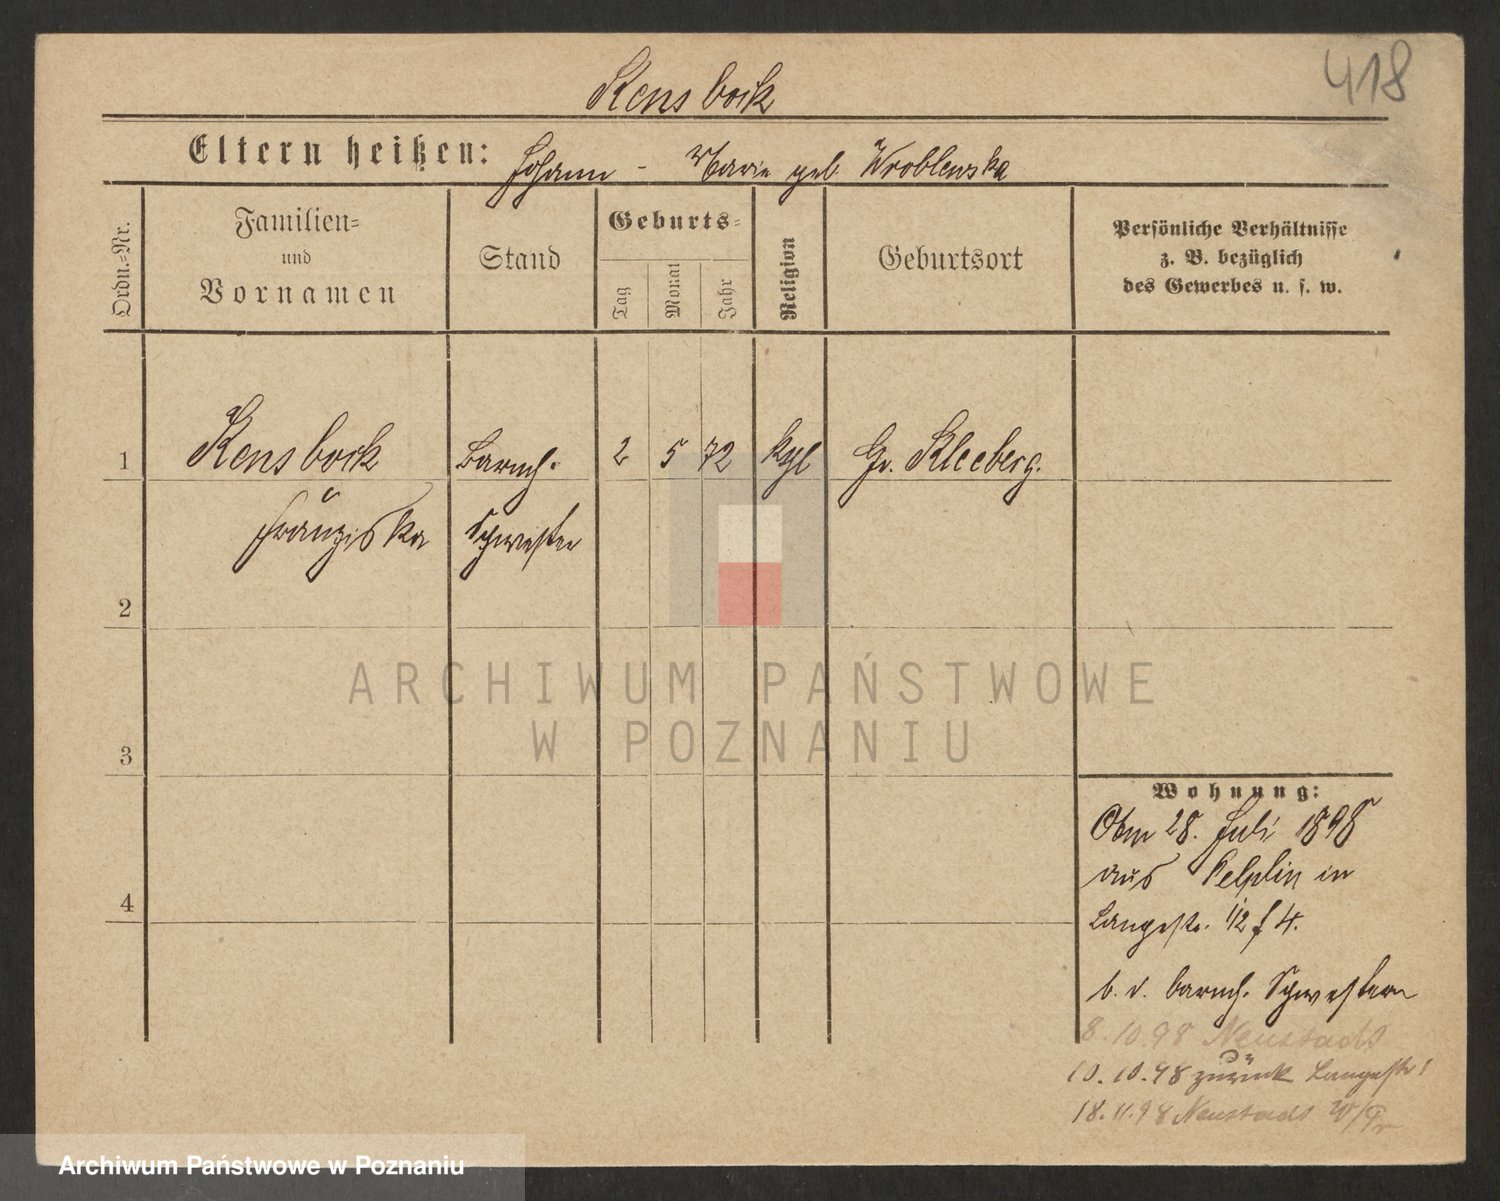 418
Rensbock
Eltern heißen: Johann - Marie geb. Wroblewska
Ordn.-Nr.
Familien- und Vornamen
Stand
Geburts-
Tag
Monat
Jahr
Religion
Geburtsort
Persönliche Verhältnisse
z. B. bezüglich
des Gewerbes u. s. w.
1 Rensbock Barmh. 2 5 72 Gr. Kleeberg.
Franziska Schwester
2
3
4
ARCHIWUM PAŃSTWOWE
W POZNANIU
Wohnung:
28. Juli 1898
aus Pelplin in
Langestr. 1/2 f 4.
b. d. barmh. Schwestern
8.10.98 Neustadt
10.10.98 zurück Langestr.
18.11.98 Neustadt W/Pr
Archiwum Państwowe w Poznaniu